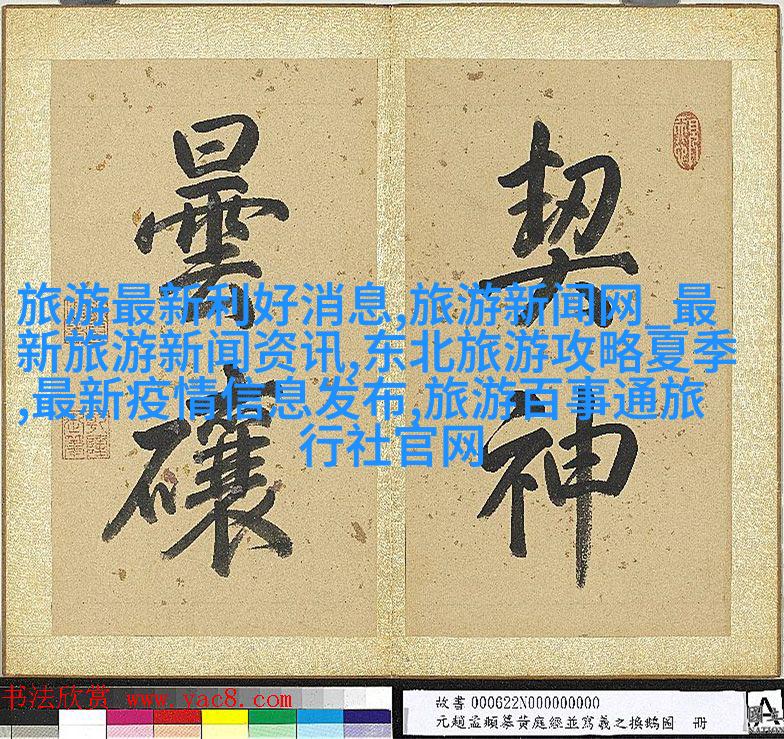 神契
曇
旅游最新利好消息,旅游新闻网_最
新旅游新闻资讯,东北旅游攻略夏季
,最新疫情信息发布,旅游百事通旅
行社官网
书法欣赏 www.yac8.com
故書 000622N000000000
元趙孟頫摹黃庭經並寫羲之換鵝圖 冊